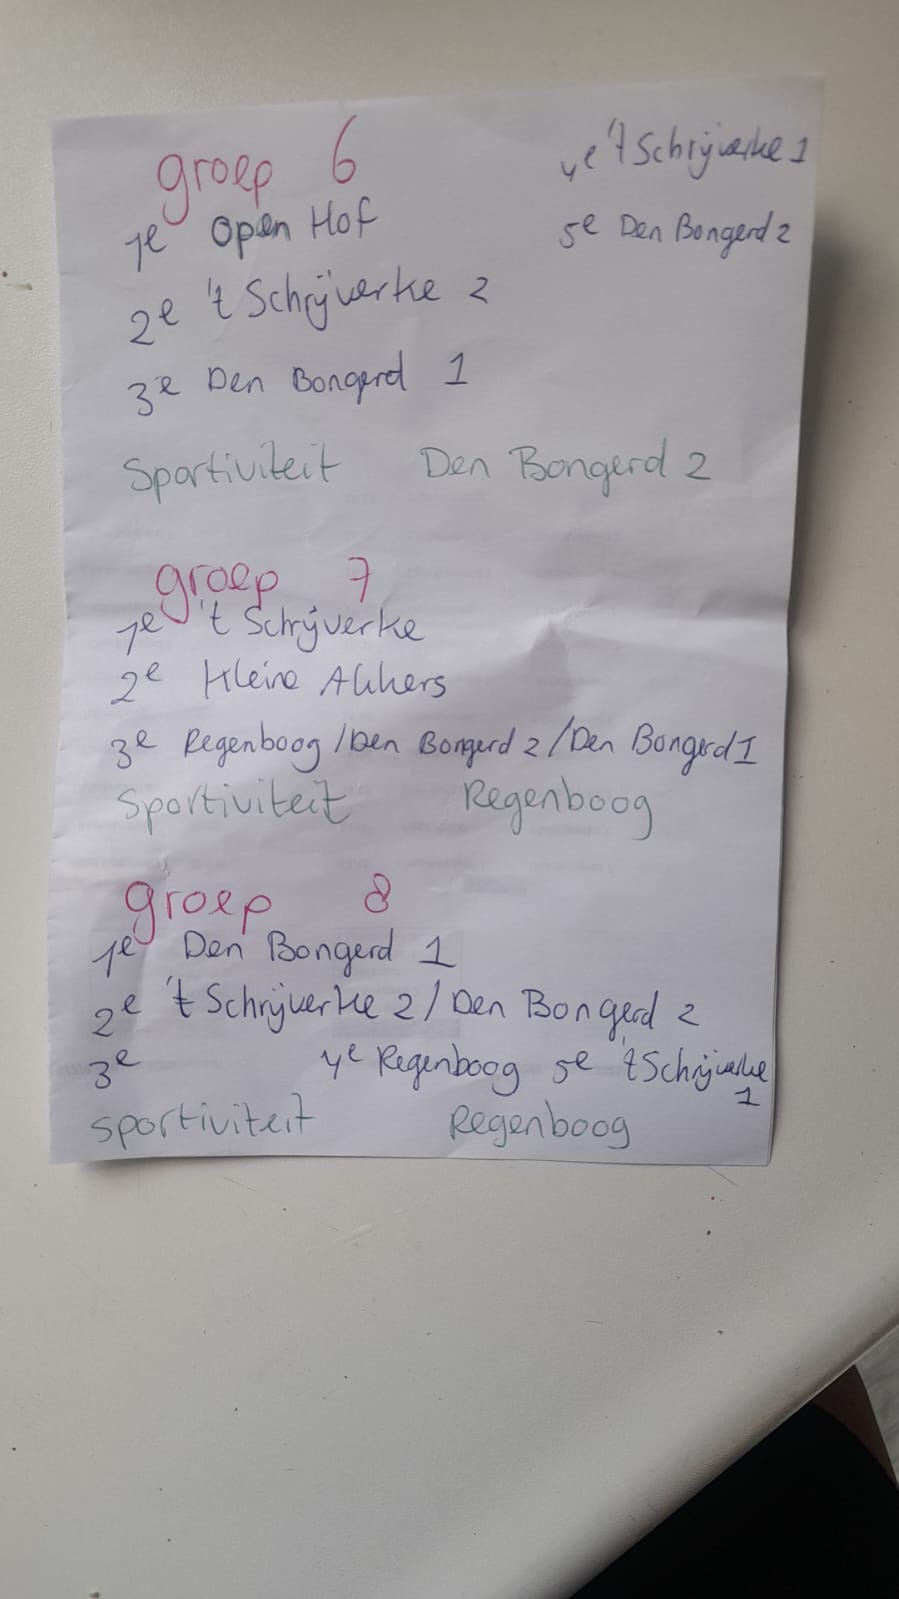 groep 6
1e Open Hof
2e 't Schrijverke 2
3e Den Bongerd 1
4e 't Schrijverke 1
5e Den Bongerd 2
Sportiviteit Den Bongerd 2
groep 7
1e 't Schrijverke
2e Kleine Akkers
3e Regenboog / Den Bongerd 2 / Den Bongerd 1
Sportiviteit Regenboog
groep 8
1e Den Bongerd 1
2e 't Schrijverke 2 / Den Bongerd 2
3e 4e Regenboog 5e 't Schrijverke
1
Sportiviteit Regenboog